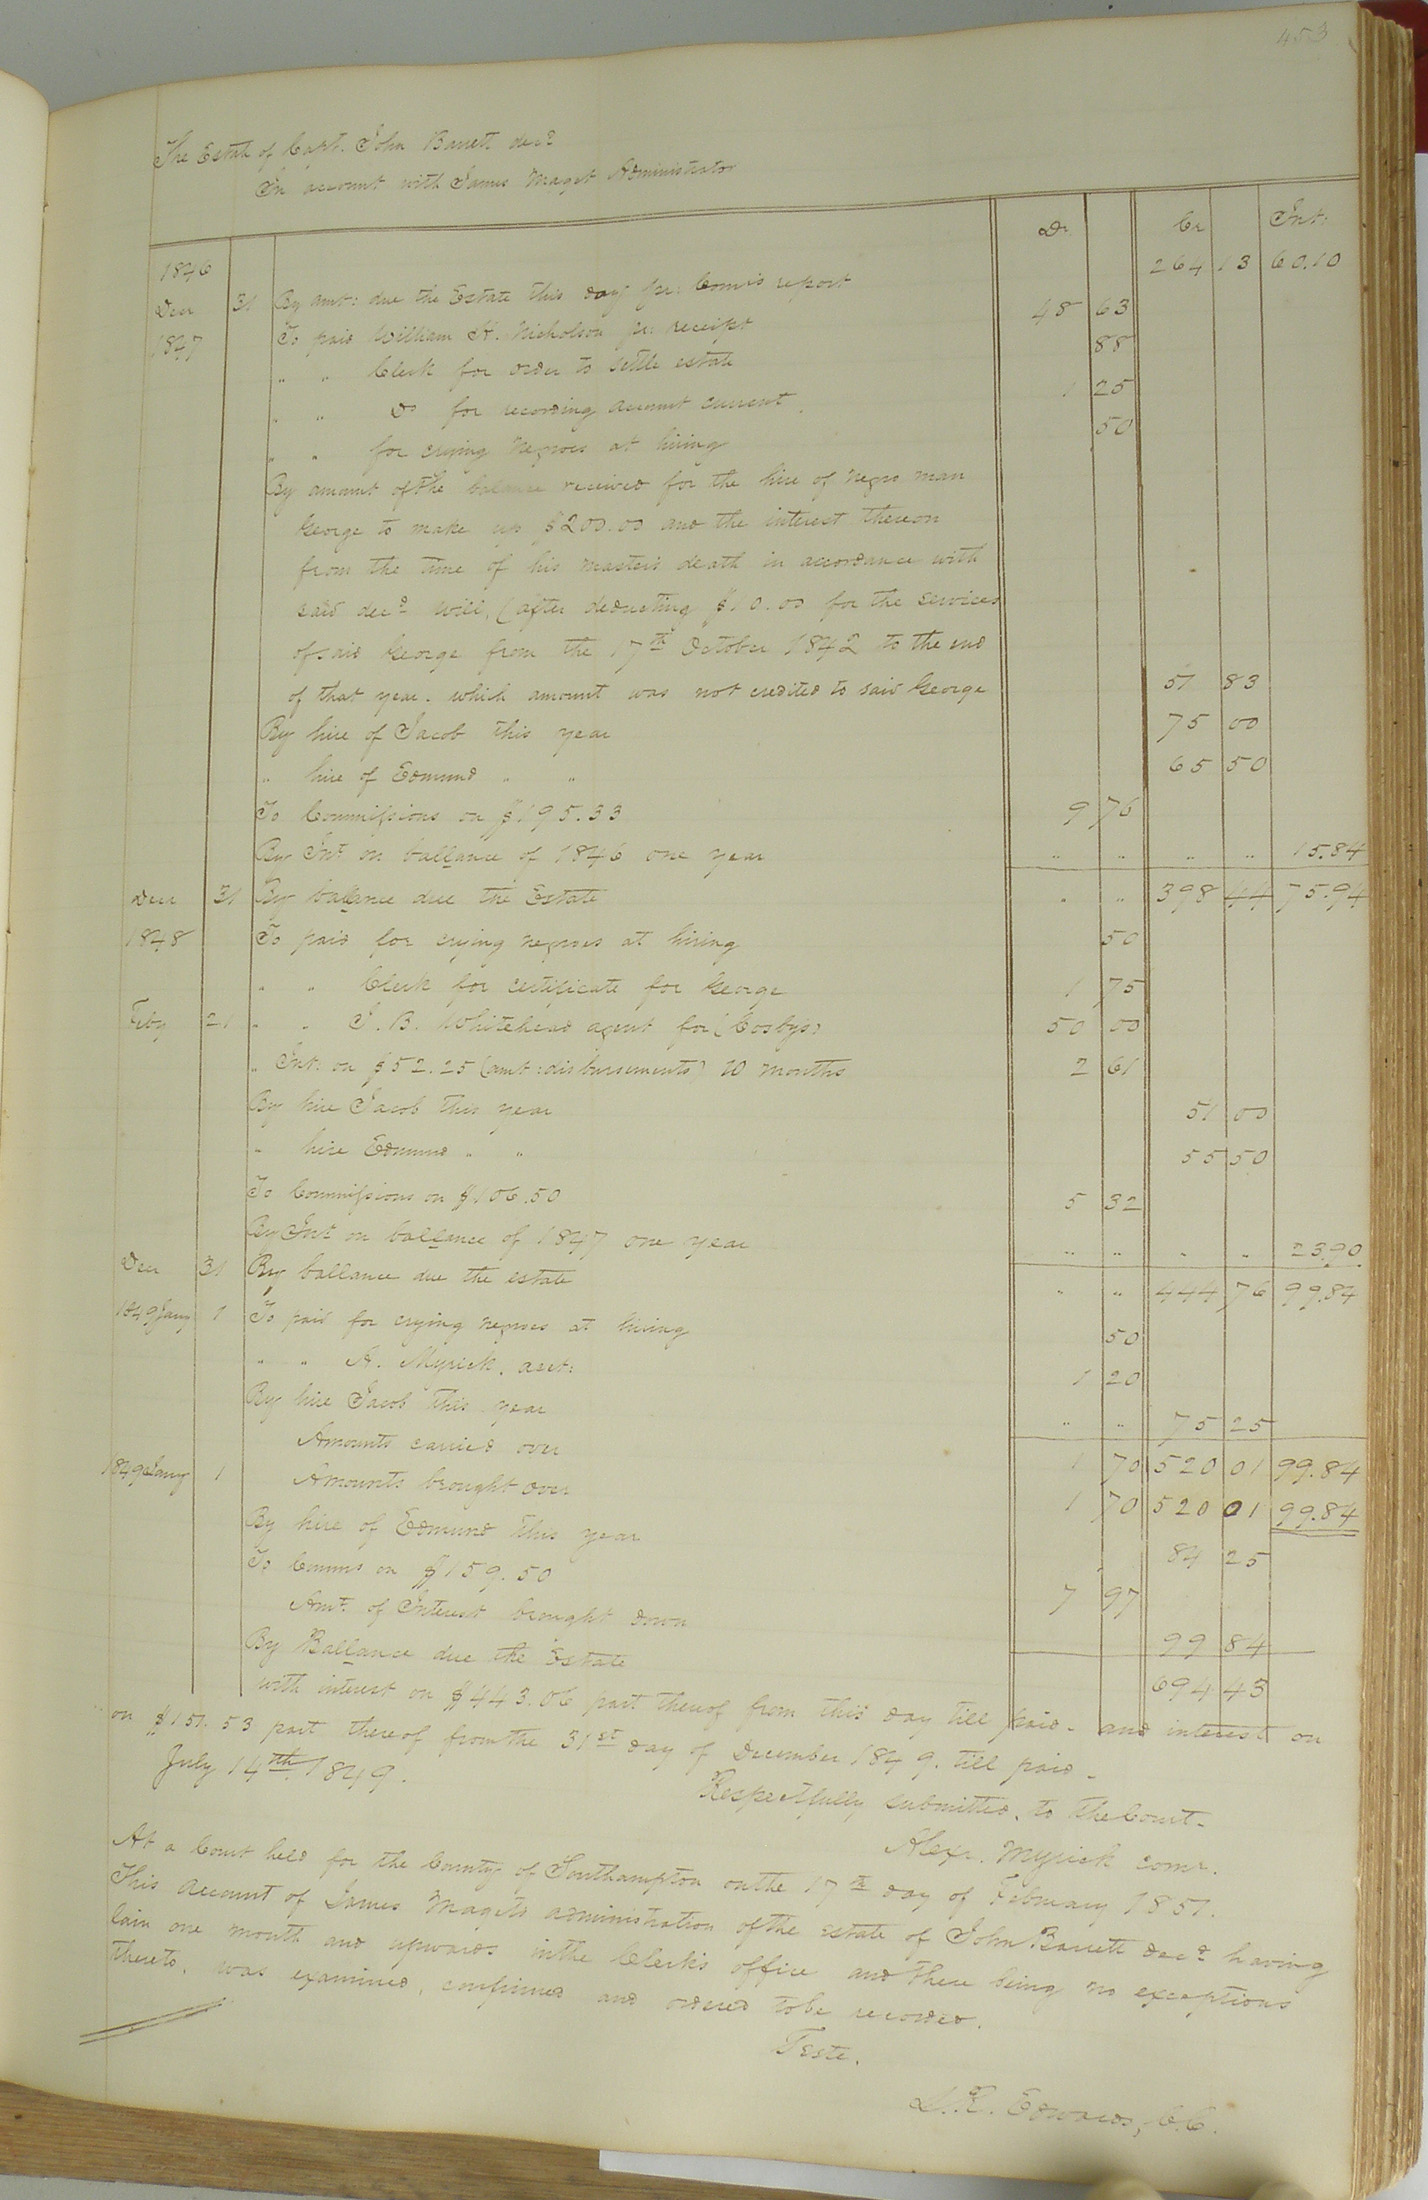 453
The Estate of Capt. John Barrett decd
In account with James Maget Administrator
Dr Cr Int:
1846
Decr 31 By amt: due the Estate this day pr: Comrs report 264 13 60.10
1847 To paid William H. Nicholson pr: receipt 48 63
" " Clerk for order to settle estate 88
" " Do for recording account current 1 25
" " for crying negroes at hiring 50
By amount of the balance received for the hire of negro man
George to make up $200.00 and the interest thereon
from the time of his masters death in accordance with
said decd will, (after deducting $10.00 for the services
of said George from the 17th October 1842 to the end
of that year. which amount was not credited to said George 51 83
By hire of Jacob this year 75 00
" hire of Edmund " " 65 50
To Commissions on $195.33 9 76
By Int on ballance of 1846 one year " " " " 15.84
Decr 31 By ballance due the Estate " " 398 44 75.94
1848 To paid for crying negroes at hiring 50
" " Clerk for certificate for George 1 75
Feby 21 " " J. B. Whitehead agent for (Cosbys) 50 00
" Int. on $52.25 (amt: disbursements) 10 months 2 61
By hire Jacob this year 51 00
" hire Edmund " " 55 50
To Commissions on $106.50 5 32
By Int on ballance of 1847 one year " " " " 23.90
Decr 31 By ballance due the estate " " 444 76 99.84
1849 Jany 1 To paid for crying negroes at hiring 50
" " A. Myrick. acct: 1 20
By hire Jacob this year " " 75 25
Amounts carried over 1 70 520 01 99.84
1849 Jany 1 Amounts brought over 1 70 520 01 99.84
By hire of Edmund this year 84 25
To Comms on $159.50 7 97
Amt. of Interest brought down 99 84
By Ballance due the Estate 694 43
with interest on $443.06 part thereof from this day till paid - and interest on
on $151.53 part thereof from the 31st day of December 1849. till paid -
July 14th 1849.
Respectfully submitted, to the Court -
Alexr. Myrick comr.
At a Court held for the County of Southampton on the 17th day of February 1851.
This account of James Magets administration of the estate of John Barrett decd having
lain one month and upwards in the Clerks office and there being no exceptions
thereto, was examined, confirmed and ordered to be recorded.
Teste,
L. R. Edwards, C.C.